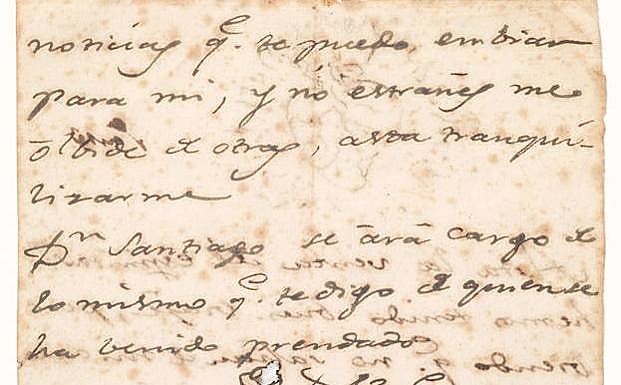 noticias q.e te puedo embiar
para mi, y no estrañes me
olbide de otras, asta tranqui-
lizarme
Dn Santiago se ará cargo de
lo mismo q.e te digo de quien se
ha venido prendado